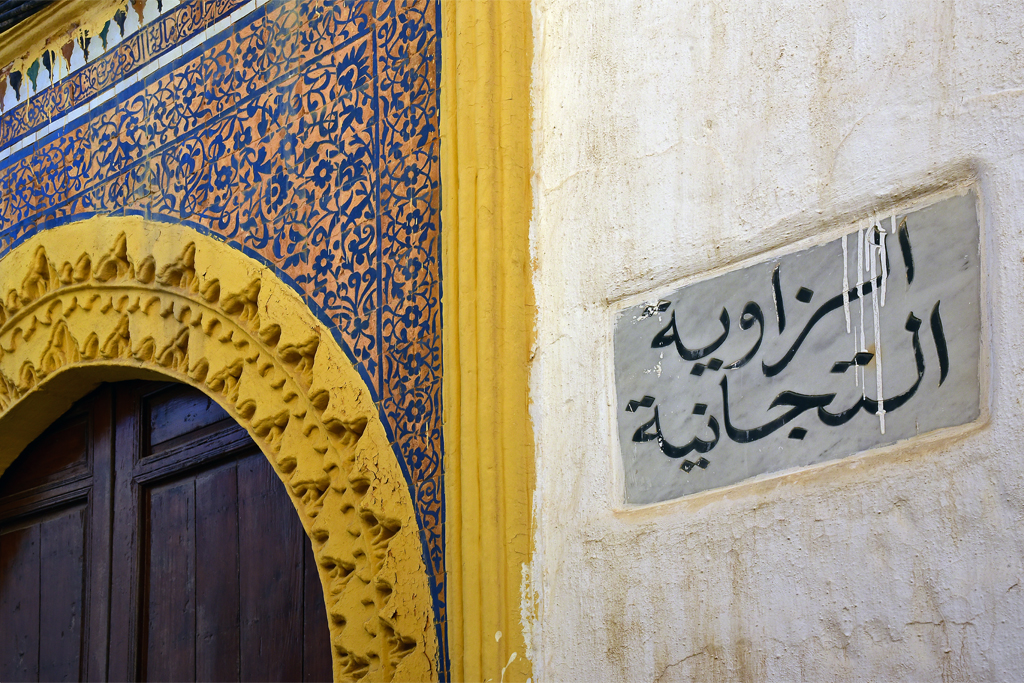 الزاوية
التجانية